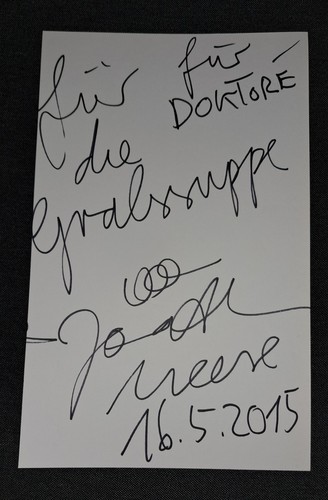 für für
DOKTORE
die
Gralssuppe
Jonath
Meese
16.5.2015